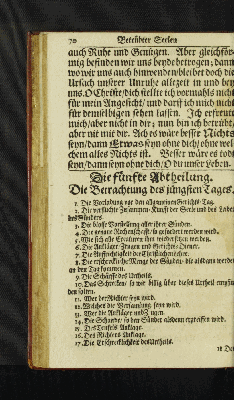 70 Betrübter Seelen
auch Ruhe und Genügen. Aber gleichför-
mig befinden wir uns beyde betrogen; dann
wo wir uns auch hinwenden/ bleibet doch die
Ursach unserer Unruhe allezeit in und bey
uns. O Christe/ dich stellte ich vormahls nicht
für mein Angesicht/ und darff ich mich nicht
für demselbigen sehen lassen. Ich erfreute
mich/ aber nicht in dir; nun bin ich betrübt/
aber nit mit dir. Ach es wäre besser Nichts
seyn/ dann Etwas seyn ohne dich/ ohne wel-
chem alles Nichts ist. Besser wäre es todt
seyn/ dann seyn ohne dich/ O du unser Leben.
Die fünfte Abtheilung.
Die Betrachtung des jüngsten Tages.
1. Die Vorladung zu dem allgemeinen Gerichts-Tag.
2. Die Zusammen-Kunfft der Seele und des Leibes
des Sünders.
3. Die blosse Vorstellung aller ihrer Sünden.
4. Die genaue Rechenschafft/ so gefordert werden wird.
5. Wie sich alle Creaturen ihm widersetzen werden.
6. Die Ankläger Zeugen und
7. Die Auffrichtigkeit der
8. Die erschröckliche Menge der Sünden/ die alsdann werden
an den Tag kommen.
9. Die Schärffe des Urtheils.
10. Das Schrecken/ so wir billig über dieses Urtheil empfin-
den sollen.
11. Wer der Richter seyn wird.
12. Welches die Versamlung seyn wird.
13. Wer die Ankläger und Zeugen.
14. Die Schande/ so den Sünder alsdann ergreiffen wird.
15. Des Teufels Anklage.
16. Des Richters Anklage.
17. Die Erschrecklichkeit des Urtheils.
18 Der